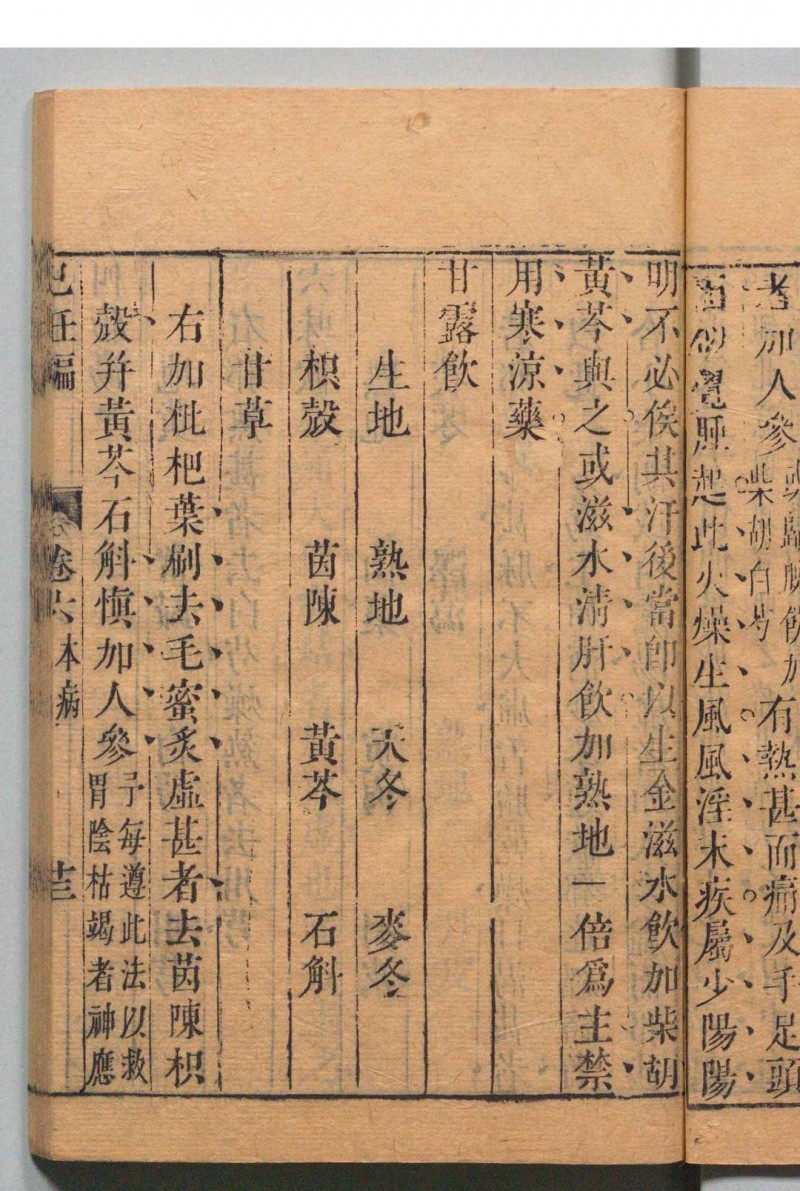 者加人參柴胡白芍有熱甚而痛及手足頭
面俱覺腫起此火燥生風風淫末疾屬少陽陽
明不必俟其汗後當卽以生金滋水飲加柴胡
黃芩與之或滋水清肝飲加熟地一倍爲主禁
用寒涼藥
甘露飲
生地 熟地 天冬 麥冬
枳殼 茵陳 黃芩 石斛
甘草
右加枇杷葉刷去毛蜜炙虛甚者去茵陳枳
殼幷黃芩石斛愼加人參予每遵此法以救
胃陰枯竭者神應
己任編 卷六 本病 十三